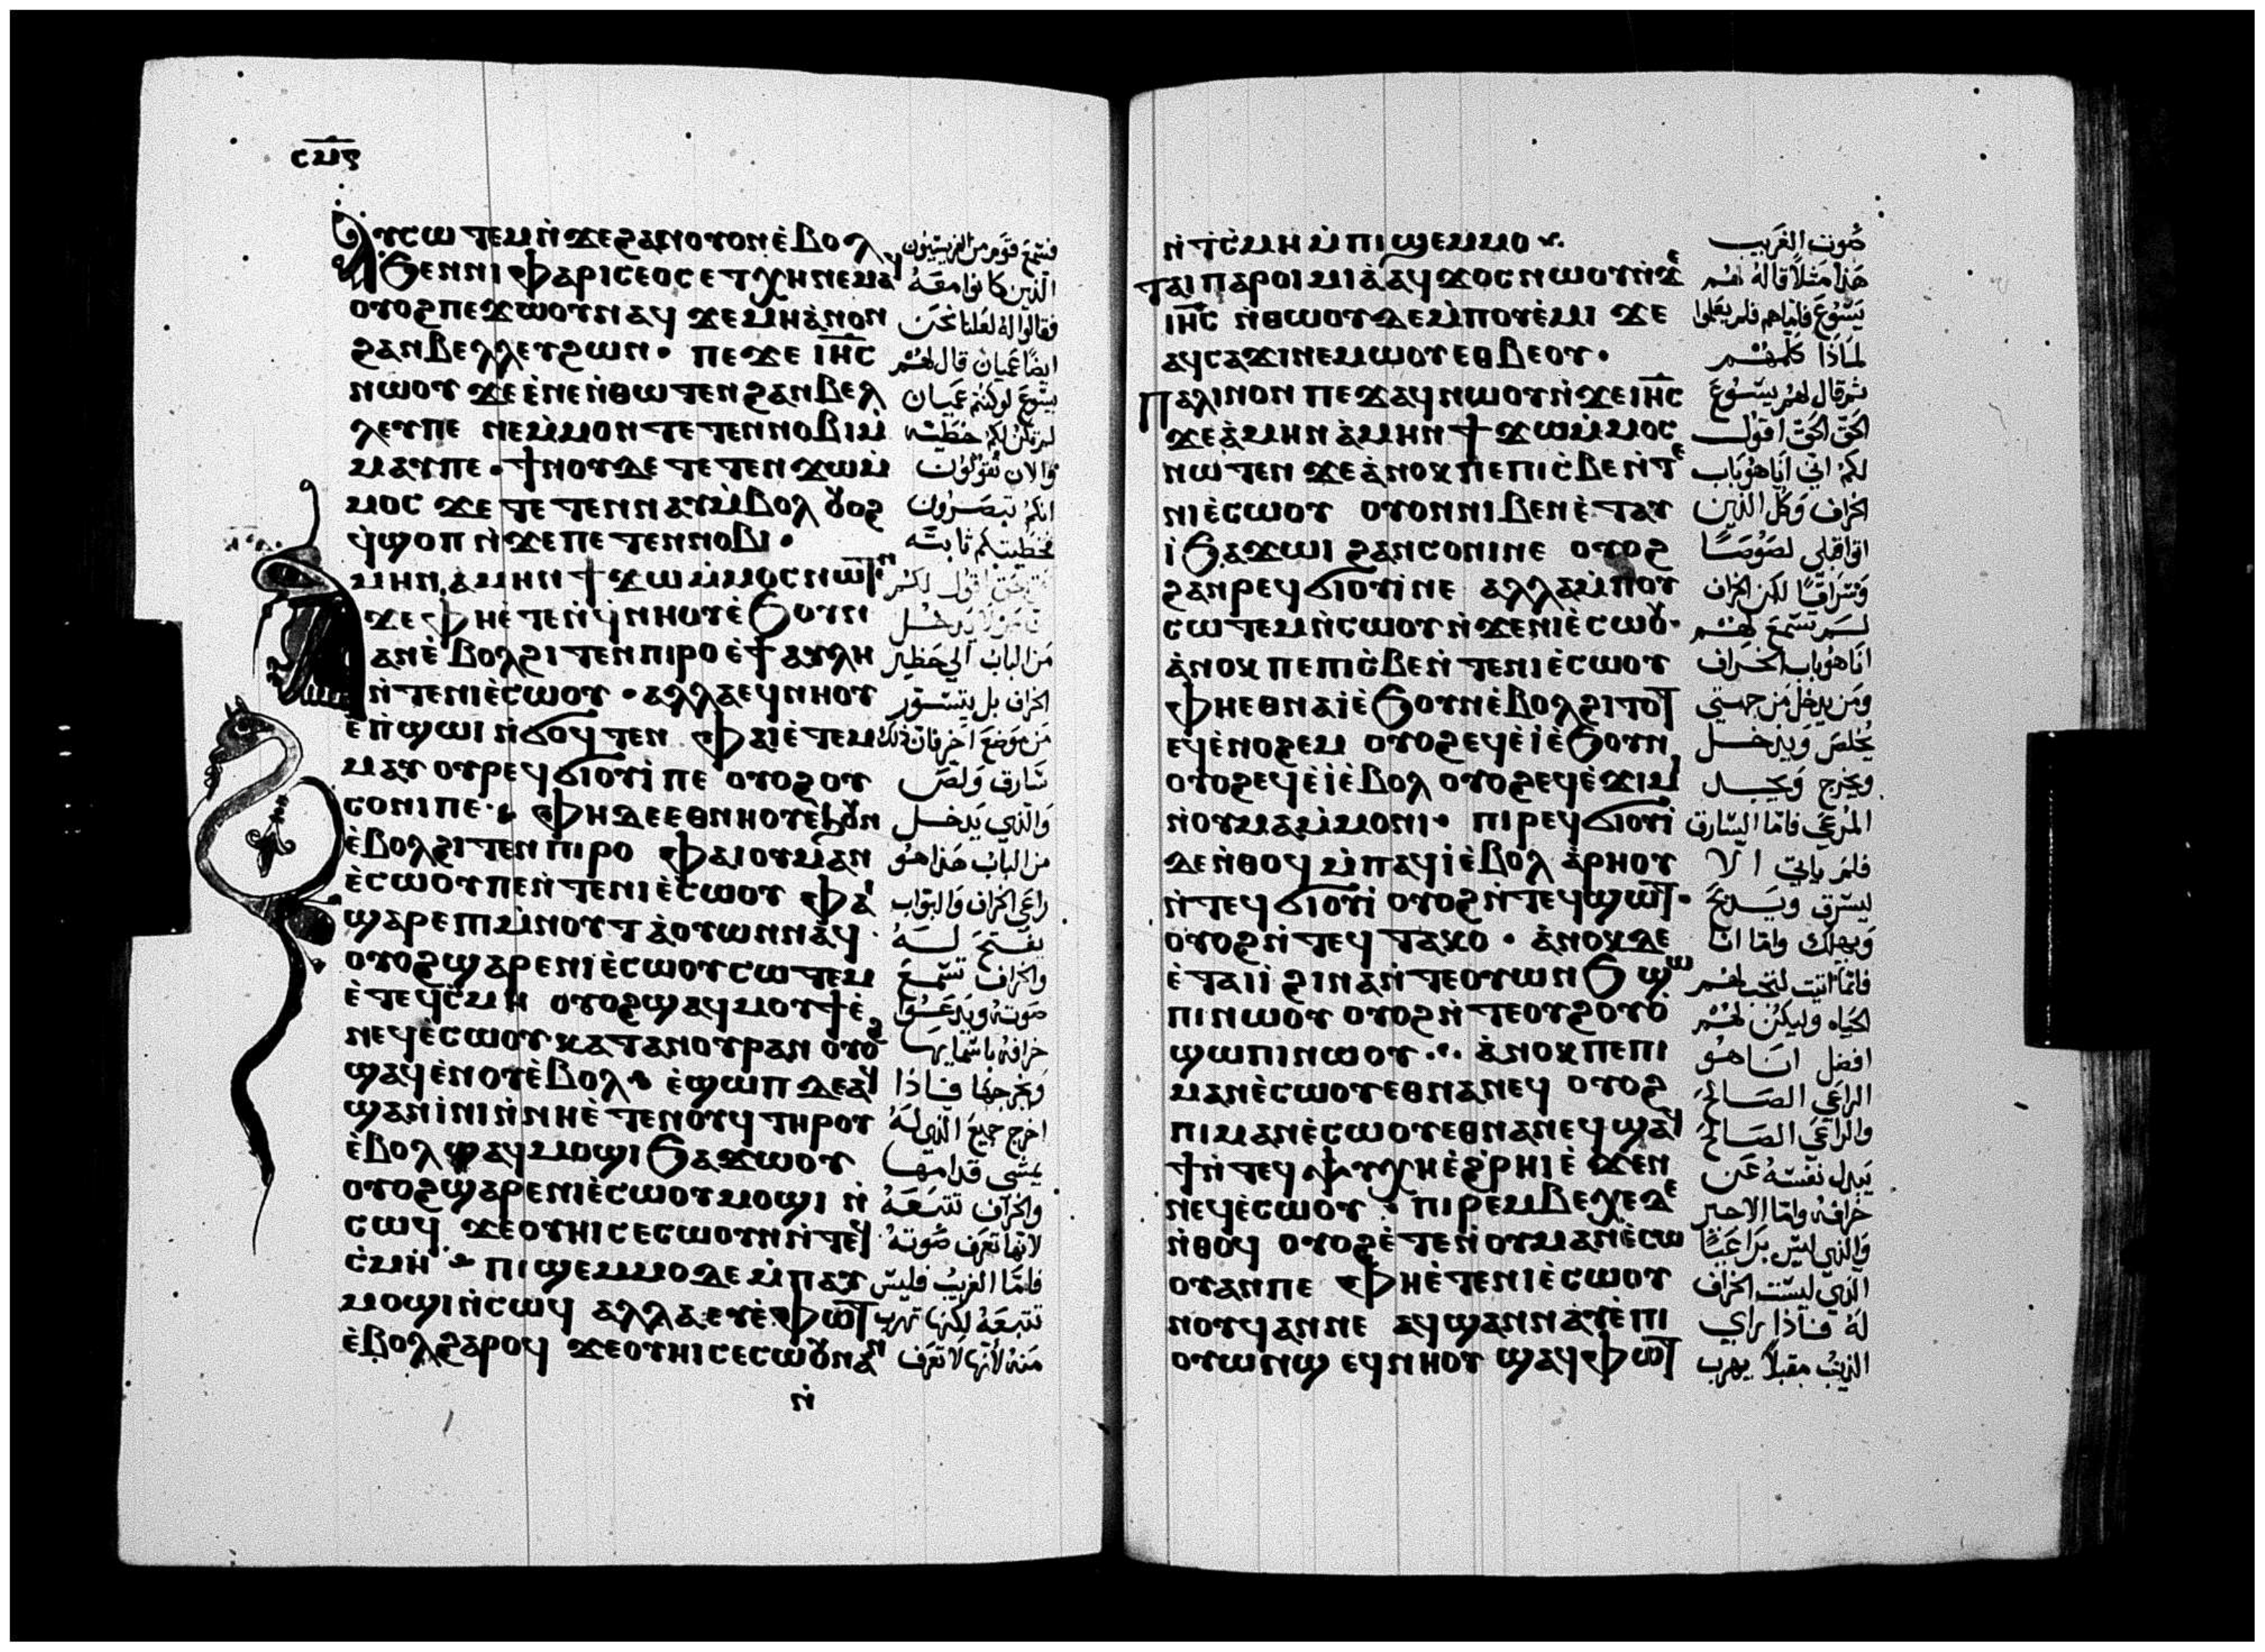 ⲥⲙⲋ
Ⲁⲩⲥⲱⲧⲉⲙ ⲛ̀ϫⲉϩⲁⲛⲟⲩⲟⲛ ⲉ̀ⲃⲟⲗ
ϧⲉⲛⲛⲓⲫⲁⲣⲓⲥⲉⲟⲥ ⲉⲧⲭⲏ ⲛⲉⲙⲁϥ
ⲟⲩⲟϩ ⲡⲉϫⲱⲟⲩ ⲛⲁϥ ϫⲉ ⲙⲏ ⲁ̀ⲛⲟⲛ
ϩⲁⲛⲃⲉⲗⲗⲉⲩ ϩⲱⲛ · ⲡⲉϫⲉ ⲓⲏ̅ⲥ
ⲛⲱⲟⲩ ϫⲉ ⲉ̀ⲛⲉ ⲛ̀ⲑⲱⲧⲉⲛ ϩⲁⲛⲃⲉⲗ
ⲗⲉⲩ ⲡⲉ ⲛⲉⲙ̀ⲙⲟⲛⲧⲉⲧⲉⲛ ⲛⲟⲃⲓ ⲙ̀
ⲙⲁⲩ ⲡⲉ · ϯⲛⲟⲩ ⲇⲉ ⲧⲉⲧⲉⲛϫⲱ ⲙ̀
ⲙⲟⲥ ϫⲉ ⲧⲉⲧⲉⲛⲛⲁⲩ ⲙ̀ⲃⲟⲗ ⲟⲩⲟϩ
ϥ̀ϣⲟⲡ ⲛ̀ϫⲉ ⲡⲉⲧⲉⲛⲛⲟⲃⲓ ·
ⲙⲏⲛ ⲁ̀ⲙⲏⲛ ϯϫⲱ ⲙ̀ⲙⲟⲥ ⲛⲱⲧⲉⲛ
ϫⲉ ⲫⲏ ⲉ̀ⲧⲉⲛϥ̀ⲛⲏⲟⲩ ⲉ̀ϧⲟⲩⲛ
ⲁⲛ ⲉ̀ⲃⲟⲗϩⲓⲧⲉⲛ ⲡⲓⲣⲟ ⲉ̀ϯⲁⲩⲗⲏ
ⲛ̀ⲧⲉ ⲛⲓⲉ̀ⲥⲱⲟⲩ · ⲁⲗⲗⲁ ⲉϥⲛⲏⲟⲩ
ⲉ̀ⲡ̀ϣⲱⲓ ⲛ̀ϭⲟϥⲧⲉⲛ ⲫⲁⲓ ⲉ̀ⲧⲉⲙ
ⲙⲁⲩ ⲟⲩⲣⲉϥϭⲓⲟⲩⲓ̀ ⲡⲉ ⲟⲩⲟϩ ⲟⲩ
ⲥⲟⲛⲓ ⲡⲉ · ⲫⲏ ⲇⲉ ⲉⲑⲛⲏⲟⲩ ⲉ̀ϧⲟⲩⲛ
ⲉ̀ⲃⲟⲗϩⲓⲧⲉⲛ ⲡⲓⲣⲟ ⲫⲁⲓ ⲟⲩⲙⲁⲛ
ⲉ̀ⲥⲱⲟⲩ ⲡⲉ ⲛ̀ⲧⲉ ⲛⲓⲉ̀ⲥⲱⲟⲩ ⲫⲁⲓ
ϣⲁⲣⲉ ⲡⲓⲙ̀ⲛⲟⲩⲧ ⲁ̀ⲟⲩⲱⲛ ⲛⲁϥ
ⲟⲩⲟϩ ϣⲁⲣⲉ ⲛⲓⲉ̀ⲥⲱⲟⲩ ⲥⲱⲧⲉⲙ
ⲉ̀ⲧⲉϥⲥ̀ⲙⲏ ⲟⲩⲟϩ ϣⲁϥⲙⲟⲩϯ ⲉ̀
ⲛⲉϥⲉ̀ⲥⲱⲟⲩ ⲕⲁⲧⲁ ⲛⲟⲩⲣⲁⲛ ⲟⲩⲟϩ
ϣⲁϥⲉ̀ⲛⲟⲩ ⲉ̀ⲃⲟⲗ ⲉ̀ϣⲱⲡ ⲇⲉ ⲁϥ
ϣⲁⲛⲓ̀ⲛⲓ ⲛ̀ⲛⲏ ⲉ̀ⲧⲉⲛⲟⲩϥ ⲧⲏⲣⲟⲩ
ⲉ̀ⲃⲟⲗ ϣⲁϥⲙⲟϣⲓ ϧⲁϫⲱⲟⲩ
ⲟⲩⲟϩ ϣⲁⲣⲉ ⲛⲓⲉ̀ⲥⲱⲟⲩ ⲙⲟϣⲓ ⲛ̀
ⲥⲱϥ ϫⲉ ⲟⲩⲏⲓ ⲥⲉⲥⲱⲟⲩⲛ ⲛ̀ⲧⲉϥ
ⲥ̀ⲙⲏ ⲡⲓϣⲉⲙⲙⲟ ⲇⲉ ⲙ̀ⲡⲁⲩ
ⲙⲟϣⲓ ⲛ̀ⲥⲱϥ ⲁⲗⲗⲁ ⲉⲩⲉ̀ⲫⲱⲧ
ⲉ̀ⲃⲟⲗϩⲁⲣⲟϥ ϫⲉ ⲟⲩⲏⲓ ⲥⲉⲥⲱⲟⲩⲛ ⲁⲛ
ⲛ̀
فسمع قوم من الفريسيون
الذين كانوا معه
فقالوا له لعلنا نحن
ايضا عميان قال لهم
يسوع لو كنتم عميان
لم تكن لكم خطية
والان تقولون
انكم تبصرون
فخطيتكم ثابته
حق اقول لكم
من لا يدخل
من الباب الى حظير
الخراف بل يتسور
من موضع اخر فان ذلك
سارق ولص
والذي يدخل
من الباب هذا هو
راعي الخراف والبواب
يفتح له
والخراف تسمع
صوته ويدعوا
خرافه باسمايها
ويخرجها فاذا
اخرج جميع الذي له
يمشى قدامها
والخراف تتبعه
لانها تعرف صوته
فاما الغريب فليس
تتبعه لكنها تهرب
منه لانها لا تعرف
ⲛ̀ⲧ̀ⲥⲙⲏ ⲙ̀ⲡⲓϣⲉⲙⲙⲟ
ⲧⲁⲓⲡⲁⲣⲟⲓⲙⲓⲁ̀ ⲁϥϫⲟⲥ ⲛⲱⲟⲩ ⲛ̀ϫⲉ
ⲓⲏ̅ⲥ ⲛ̀ⲑⲱⲟⲩ ⲇⲉ ⲙ̀ⲡⲟⲩⲉ̀ⲙⲓ ϫⲉ
ⲁϥⲥⲁϫⲓ ⲛⲉⲙⲱⲟⲩ ⲉⲑⲃⲉⲟⲩ ·
Ⲡⲁⲗⲓⲛ ⲟⲛ ⲡⲉϫⲁϥ ⲛⲱⲟⲩ ⲛ̀ϫⲉ ⲓⲏ̅ⲥ
ϫⲉ ⲁ̀ⲙⲏⲛ ⲁ̀ⲙⲏⲛ ϯϫⲱ ⲙ̀ⲙⲟⲥ
ⲛⲱⲧⲉⲛ ϫⲉ ⲁ̀ⲛⲟⲕ ⲡⲉ ⲡⲓⲥ̀ⲃⲉ ⲛ̀ⲧⲉ
ⲛⲓⲉ̀ⲥⲱⲟⲩ ⲟⲩⲟⲛ ⲛⲓⲃⲉⲛ ⲉ̀ⲧⲁⲩ
ⲓ̀ ϧⲁϫⲱⲓ ϩⲁⲛⲥⲟⲛⲓ ⲛⲉ ⲟⲩⲟϩ
ϩⲁⲛⲣⲉϥϭⲓⲟⲩⲓ̀ ⲛⲉ ⲁⲗⲗⲁ ⲙ̀ⲡⲟⲩ
ⲥⲱⲧⲉⲙ ⲛ̀ⲥⲱⲟⲩ ⲛ̀ϫⲉ ⲛⲓⲉ̀ⲥⲱⲟⲩ ·
ⲁ̀ⲛⲟⲕ ⲡⲉ ⲡⲓⲥ̀ⲃⲉ ⲛ̀ⲧⲉ ⲛⲓⲉ̀ⲥⲱⲟⲩ
ⲫⲏ ⲉⲑⲛⲁⲓ̀ ⲉ̀ϧⲟⲩⲛ ⲉ̀ⲃⲟⲗϩⲓⲧⲟⲧ
ⲉϥⲉ̀ⲛⲟϩⲉⲙ ⲟⲩⲟϩ ⲉϥⲉ̀ⲓ̀ ⲉ̀ϧⲟⲩⲛ
ⲟⲩⲟϩ ⲉϥⲉ̀ⲓ̀ ⲉ̀ⲃⲟⲗ ⲟⲩⲟϩ ⲉϥⲉ̀ϫⲓⲙⲓ
ⲛ̀ⲟⲩⲙⲁⲙ̀ⲙⲟⲛⲓ · ⲡⲓⲣⲉϥϭⲓⲟⲩⲓ̀
ⲇⲉ ⲛ̀ⲑⲟϥ ⲙ̀ⲡⲁϥⲓ̀ ⲉ̀ⲃⲟⲗ ⲁ̀ⲣⲏⲟⲩ
ⲛ̀ⲧⲉϥϭⲓⲟⲩⲓ̀ ⲟⲩⲟϩ ⲛ̀ⲧⲉϥϣⲱⲧ ·
ⲟⲩⲟϩ ⲛ̀ⲧⲉϥⲧⲁⲕⲟ · ⲁ̀ⲛⲟⲕ ⲇⲉ
ⲉ̀ⲧⲁⲓⲓ̀ ϩⲓⲛⲁ ⲛ̀ⲧⲉ ⲟⲩⲱⲛϧ ϣⲱ
ⲡⲓ ⲛⲱⲟⲩ ⲟⲩⲟϩ ⲛ̀ⲧⲉ ⲟⲩϩⲟⲩⲟ̀
ϣⲱⲡⲓ ⲛⲱⲟⲩ ·· ⲁ̀ⲛⲟⲕ ⲡⲉ ⲡⲓ
ⲙⲁⲛⲉ̀ⲥⲱⲟⲩ ⲉⲑⲛⲁⲛⲉϥ ⲟⲩⲟϩ
ⲡⲓⲙⲁⲛⲉ̀ⲥⲱⲟⲩ ⲉⲑⲛⲁⲛⲉϥ ϣⲁϥ
ϯ ⲛ̀ⲧⲉϥⲯⲩⲭⲏ ⲉ̀ϩ̀ⲣⲏⲓ ⲉ̀ϫⲉⲛ
ⲛⲉϥⲉ̀ⲥⲱⲟⲩ · ⲡⲓⲣⲉⲙⲃⲉⲭⲉ ⲇⲉ
ⲛ̀ⲑⲟϥ ⲟⲩⲟϩ ⲉ̀ⲧⲉⲛ̀ⲟⲩⲙⲁⲛⲉ̀ⲥⲱ
ⲟⲩ ⲁⲛ ⲡⲉ ⲫⲏ ⲉ̀ⲧⲉ ⲛⲓⲉ̀ⲥⲱⲟⲩ
ⲛⲟⲩϥ ⲁⲛ ⲛⲉ ⲁϥϣⲁⲛⲛⲁⲩ ⲉ̀ⲡⲓ
ⲟⲩⲱⲛϣ ⲉϥⲛⲏⲟⲩ ϣⲁϥⲫⲱⲧ
صوت الغريب
هذا مثلا قاله لهم
يسوع فاما هم فلم يعلموا
لماذا كلمهم
ثم قال لهم يسوع
الحق الحق اقول
لكم اني انا هو باب
الخراف وكل الذين
اتوا قبلي لصوصا
وسراقا لكن الخراف
لم تسمع لهم
انا هو باب الخراف
ومن يدخل من جهتي
يخلص ويدخل
ويخرج ويجد
المرعي فاما السارق
فلم ياتي الا
ليسرق ويذبح
ويهلك واما انا
فانما اتيت لتجب لهم
الحياه وليكن لهم
افضل انا هو
الراعي الصالح
والراعي الصالح
يبدل نفسه عن
خرافه واما الاجير
والذي ليس براعيا
الذي ليست الخراف
له فاذا راي
الذيب مقبلا يهرب